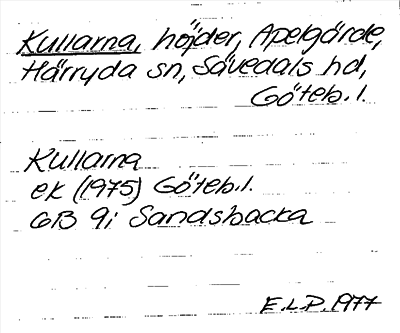 Kullarna, höjder, Apelgårde,
Härryda sn, Sävedals hd,
Göteb.l.
Kullarna
ek (1975) Göteb.l.
6B 9i Sandsbacka
E.L.P. 1977